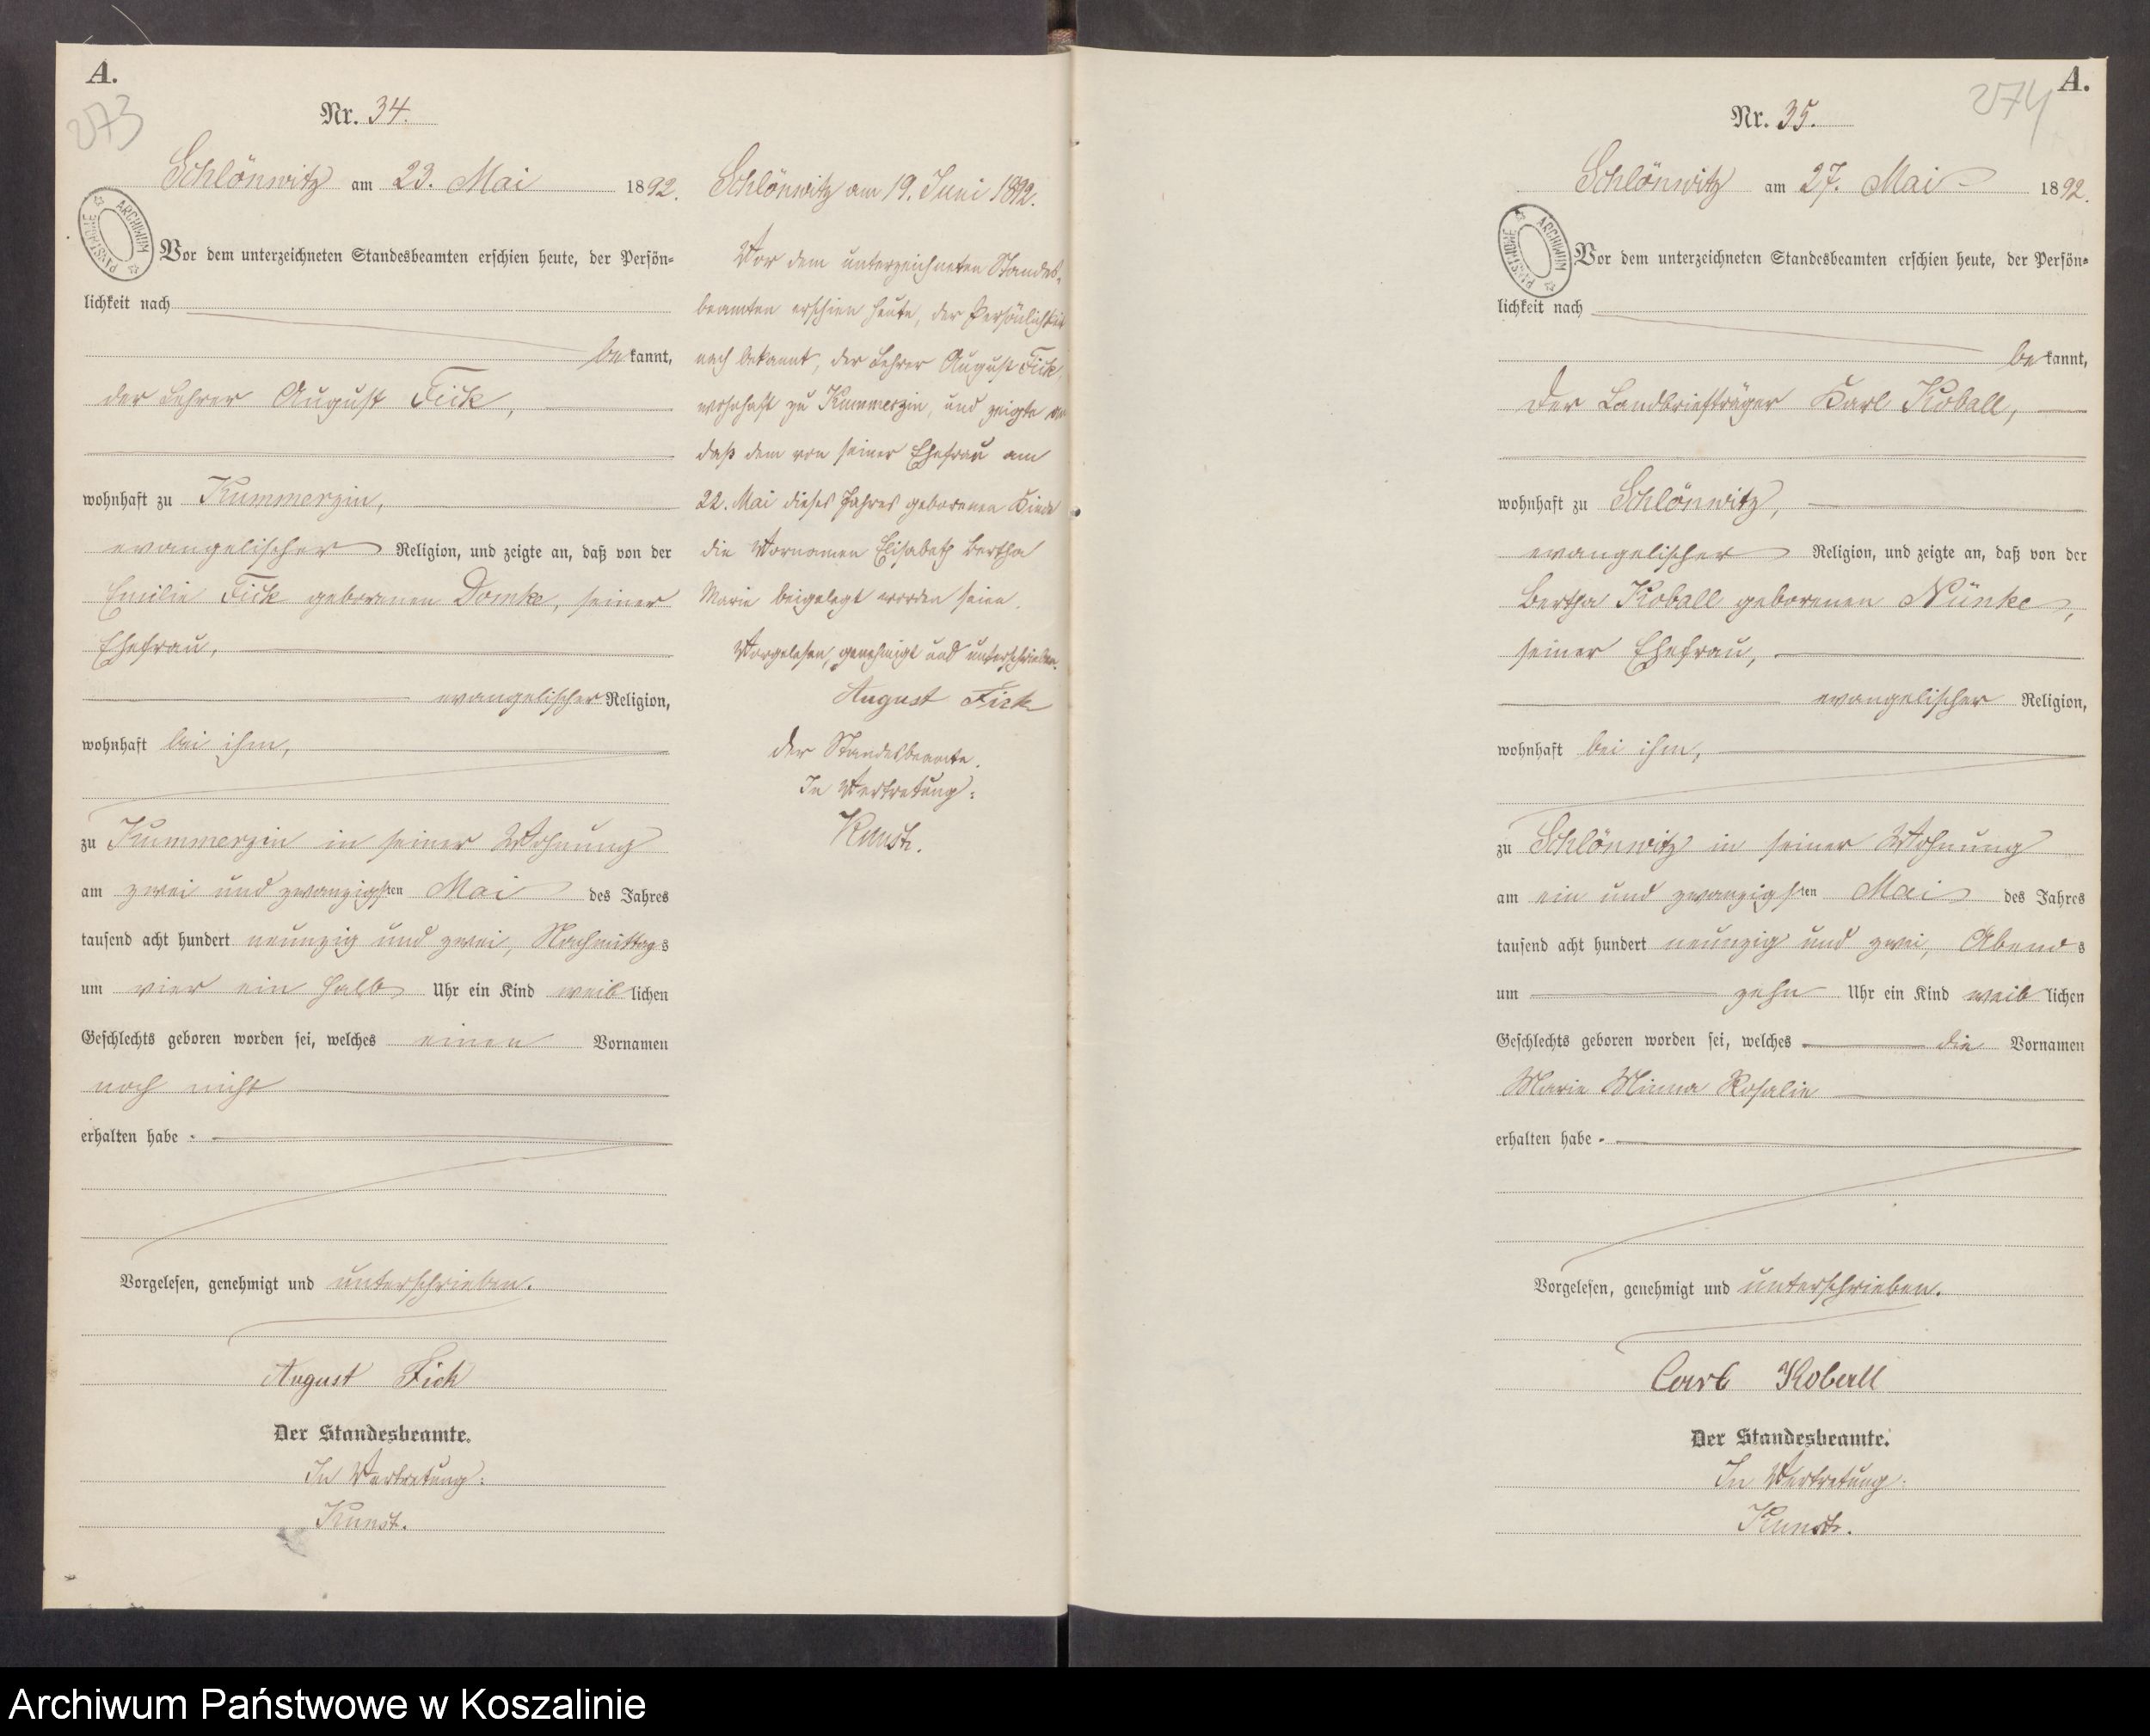 A.
273
Nr. 34.
Schlönwitz am 23. Mai 1892.
PAŃSTWOWE ARCHIWUM
Vor dem unterzeichneten Standesbeamten erschien heute, der Persön-
lichkeit nach
be kannt,
der Lehrer August Fick,
wohnhaft zu Kummerzin,
evangelischer Religion, und zeigte an, daß von der
Emilie Fick geborenen Domke, seiner
Ehefrau,
evangelischer Religion,
wohnhaft bei ihm,
zu Kummerzin in seiner Wohnung
am zwei und zwanzigsten Mai des Jahres
tausend acht hundert neunzig und zwei, Nachmittags
um vier ein halb Uhr ein Kind weiblichen
Geschlechts geboren worden sei, welches einen Vornamen
noch nicht
erhalten habe.
Vorgelesen, genehmigt und unterschrieben.
August Fick
Der Standesbeamte.
In Vertretung:
Kunst.
Schlönwitz am 19. Juni 1892.
Vor dem unterzeichneten Standes-
beamten erschien heute, der Persönlichkeit
nach bekannt, der Lehrer August Fick,
wohnhaft zu Kummerzin, und zeigte an
daß dem von seiner Ehefrau am
22. Mai dieses Jahres geborenen Kinde
die Vornamen Elisabeth Bertha
Marie beigelegt worden seien.
Vorgelesen, genehmigt und unterschrieben.
August Fick
Der Standesbeamte.
In Vertretung:
Kunst.
A.
274
Nr. 35.
Schlönwitz am 27. Mai 1892.
PAŃSTWOWE ARCHIWUM
Vor dem unterzeichneten Standesbeamten erschien heute, der Persön-
lichkeit nach
be kannt,
der Landbriefträger Karl Koball,
wohnhaft zu Schlönwitz,
evangelischer Religion, und zeigte an, daß von der
Bertha Koball geborenen Nünke,
seiner Ehefrau,
evangelischer Religion,
wohnhaft bei ihm,
zu Schlönwitz in seiner Wohnung
am ein und zwanzigsten Mai des Jahres
tausend acht hundert neunzig und zwei, Abends
um zehn Uhr ein Kind weiblichen
Geschlechts geboren worden sei, welches die Vornamen
Marie Minna Rosalie
erhalten habe.
Vorgelesen, genehmigt und unterschrieben.
Carl Koball
Der Standesbeamte.
In Vertretung:
Kunst.
Archiwum Państwowe w Koszalinie